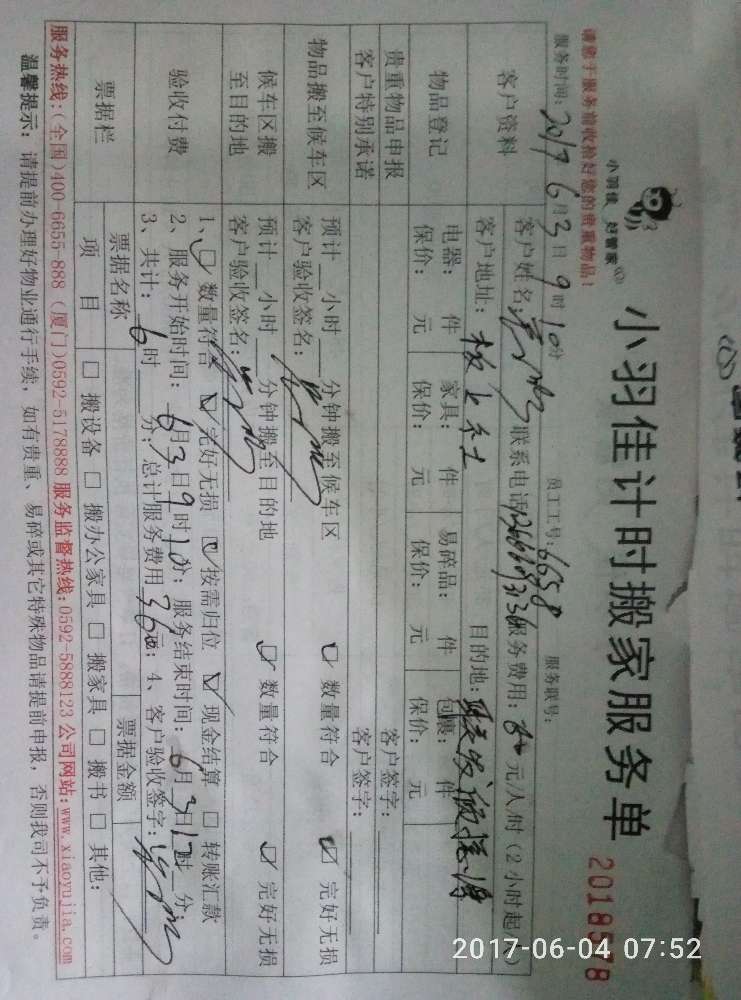 小羽佳 好管家
小羽佳计时搬家服务单
2018578
请您于服务前收拾好您的贵重物品！
员工工号：6658 服务联号：
服务时间：2017 6月3日9时10分
客户资料
客户姓名： 联系电话 服务费用： 元/人/时（2小时起/人）
客户地址： 目的地：
物品登记
电器： 件 家具： 件 易碎品： 件 包裹： 件
保价： 元 保价： 元 保价： 元 保价： 元
贵重物品申报 客户签字：
客户特别承诺 客户签字：
物品搬至候车区
预计__小时__分钟搬至候车区 数量符合 完好无损
客户验收签名：
候车区搬至目的地
预计__小时__分钟搬至目的地 数量符合 完好无损
客户验收签名：
验收付费
1、数量符合 完好无损 按需归位 现金结算 转账汇款
2、服务开始时间：6月3日9时10分；服务结束时间：6月3日12时__分；
3、共计：6时__分；总计服务费用 元；4、客户验收签字：
票据栏
票据名称 票据金额
项 目 □ 搬设备 □ 搬办公家具 □ 搬家具 □ 搬书 □ 其他：
服务热线：(全国)400-6655-888 (厦门)0592-5178888 服务监督热线：0592-5888123 公司网站：www.xiaoyujia.com
温馨提示：请提前办理好物业通行手续，如有贵重、易碎或其它特殊物品请提前申报，否则我司不予负责。
2017-06-04 07:52